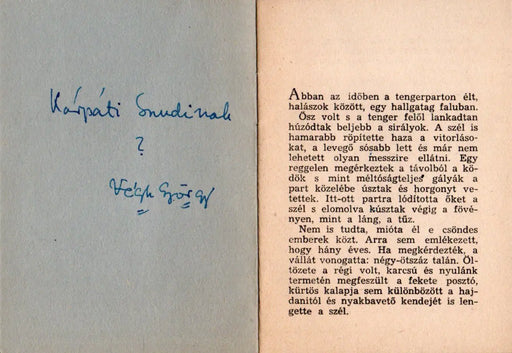 Kárpáti Snudinak
?
Végh György
Abban az időben a tengerparton élt,
halászok között, egy hallgatag faluban.
Ősz volt s a tenger felől lankadtan
húzódtak beljebb a sirályok. A szél is
hamarabb röpítette haza a vitorláso-
kat, a levegő sósabb lett és már nem
lehetett olyan messzire ellátni. Egy
reggelen megérkeztek a távolból a kö-
dök s mint méltóságteljes gályák a
part közelébe úsztak és horgonyt ve-
tettek. Itt-ott partra lódította őket a
szél s elomolva kúsztak végig a fövé-
nyen, mint a láng, a tűz.
Nem is tudta, mióta él e csöndes
emberek közt. Arra sem emlékezett,
hogy hány éves. Ha megkérdezték, a
vállát vonogatta: négy-ötszáz talán. Öl-
tözete a régi volt, karcsú és nyulánk
termetén megfeszült a fekete posztó,
kürtös kalapja sem különbözött a haj-
danitól és nyakbavető kendejét is len-
gette a szél.